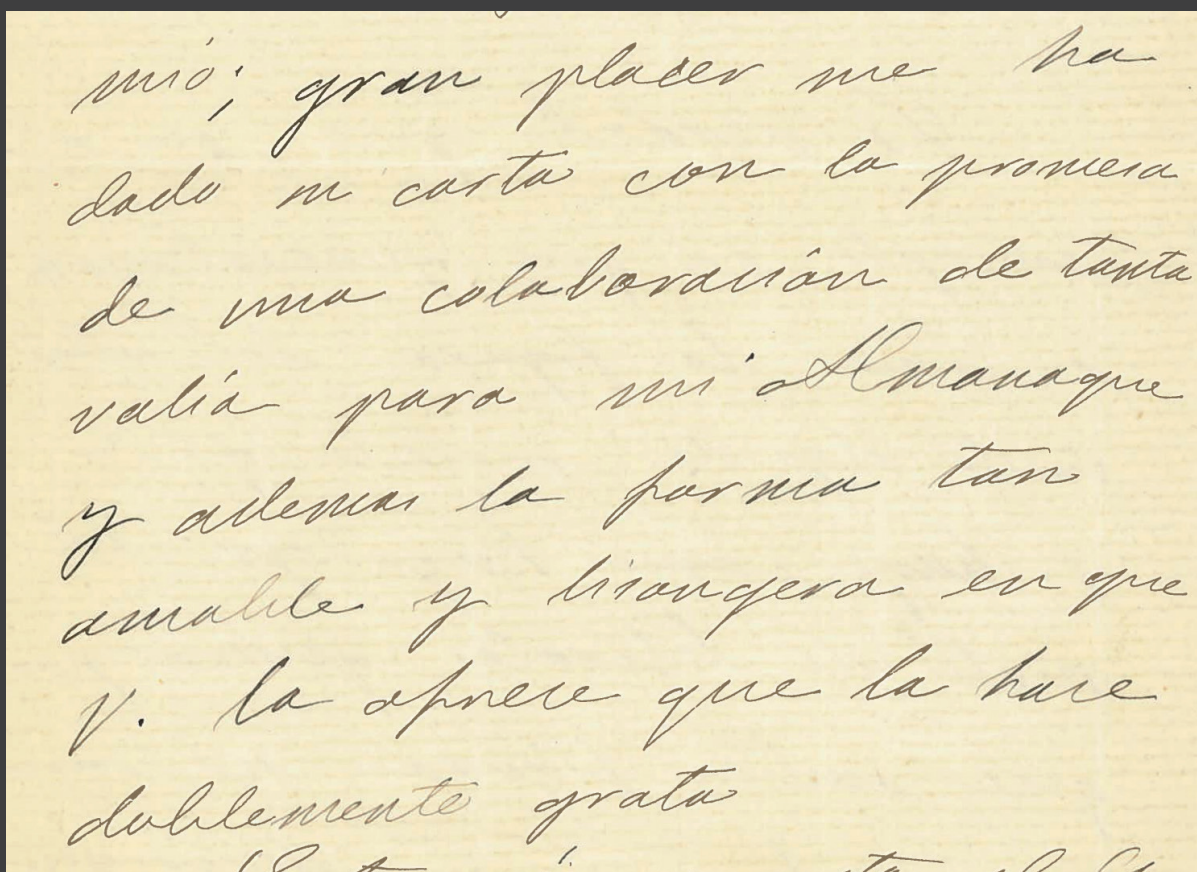 mió; gran placer me ha
dado su carta con la promesa
de una colaboración de tanta
valía para mi Almanaque
y ademas la forma tan
amable y lisongera en que
V. la ofrece que la hace
doblemente grata